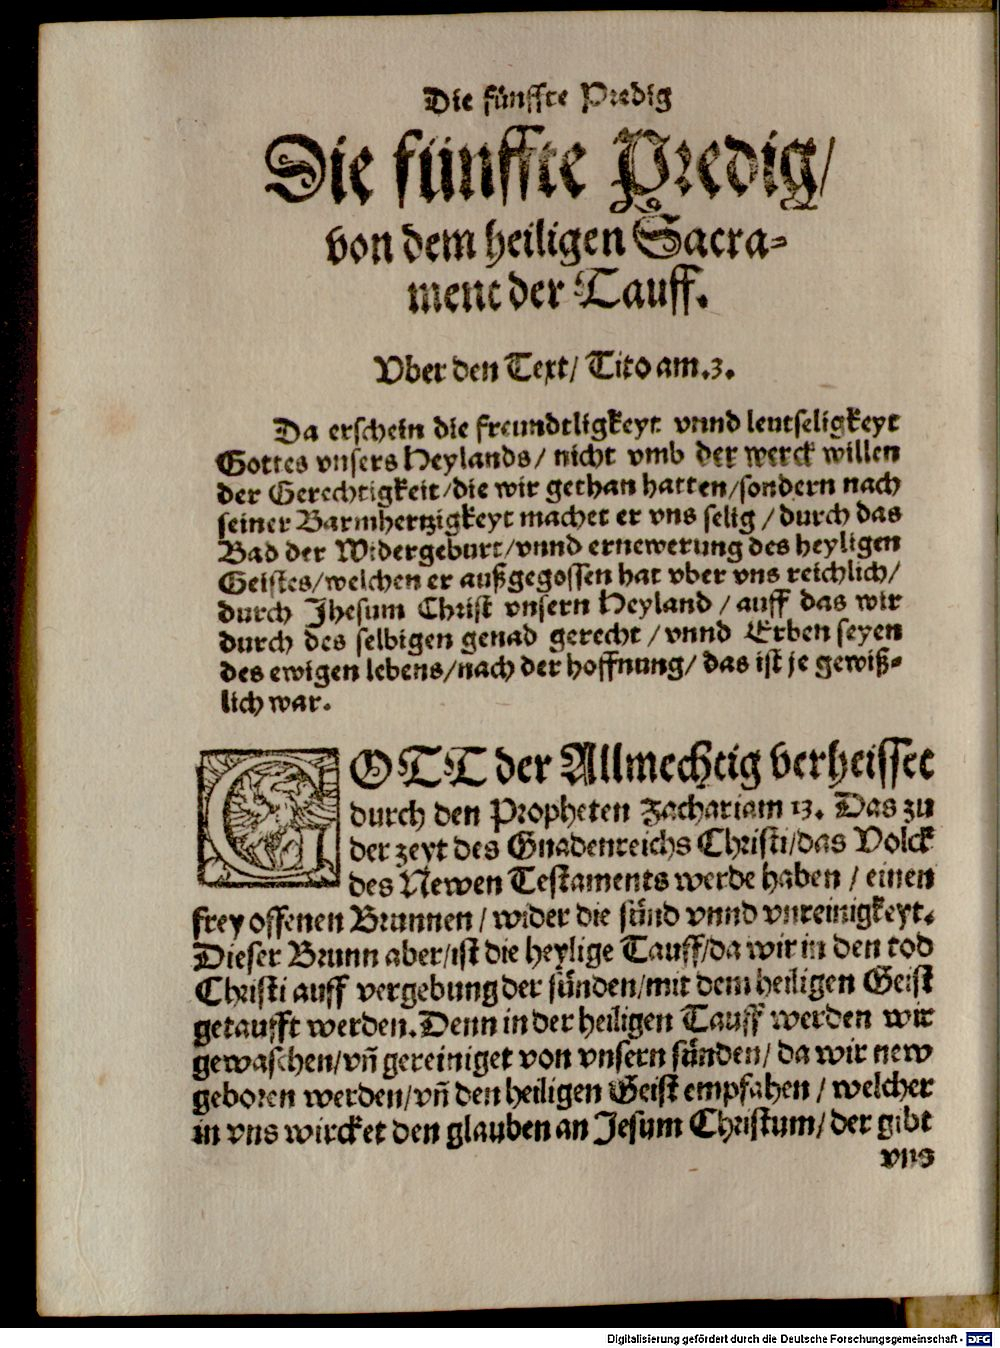 Die fünffte Predig
Die fünffte Predig/
von dem heiligen Sacra-
ment der Tauff.
Vber den Text/ Tito am.3.
Da erschein die freundtligkeyt vnnd leutseligkeyt
Gottes vnsers Heylands/ nicht vmb der werck willen
der Gerechtigkeit/die wir gethan hatten/sondern nach
seiner Barmhertzigkeyt machet er vns selig / durch das
Bad der Widergeburt/vnnd ernewerung des heyligen
Geistes/welchen er außgegossen hat vber vns reichlich/
durch Jhesum Christ vnsern Heyland / auff das wir
durch des selbigen genad gerecht / vnnd Erben seyen
des ewigen lebens/nach der hoffnung/ das ist je gewiß-
lich war.
GOTT der Allmechtig verheisset
durch den Propheten Zachariam 13. Das zu
der zeyt des Gnadenreichs Christi/das Volck
des Newen Testaments werde haben / einen
frey offenen Brunnen / wider die sünd vnnd vnreinigkeyt.
Dieser Brunn aber/ist die heylige Tauff/da wir in den tod
Christi auff vergebung der sünden/mit dem heiligen Geist
getaufft werden. Denn in der heiligen Tauff werden wir
gewaschen/vñ gereiniget von vnsern sünden/ da wir new
geboren werden/vñ den heiligen Geist empfahen / welcher
in vns wircket den glauben an Jesum Christum/ der gibt
vns
Digitalisierung gefördert durch die Deutsche Forschungsgemeinschaft - DFG